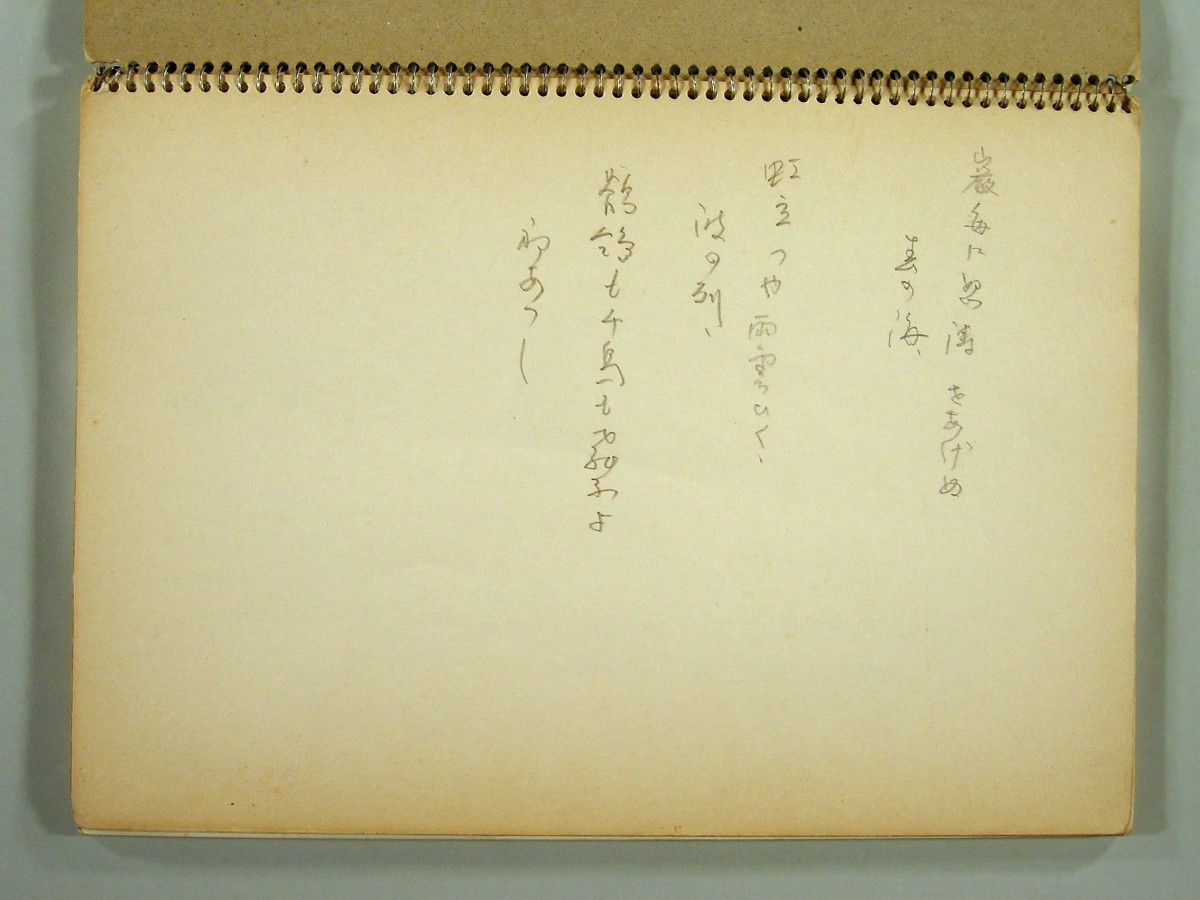 巌毎に怒濤をあげぬ
春の海、
虹立つや雨雲ひくゝ
波の列、
鶺鴒も千鳥も飛ふよ
あつし